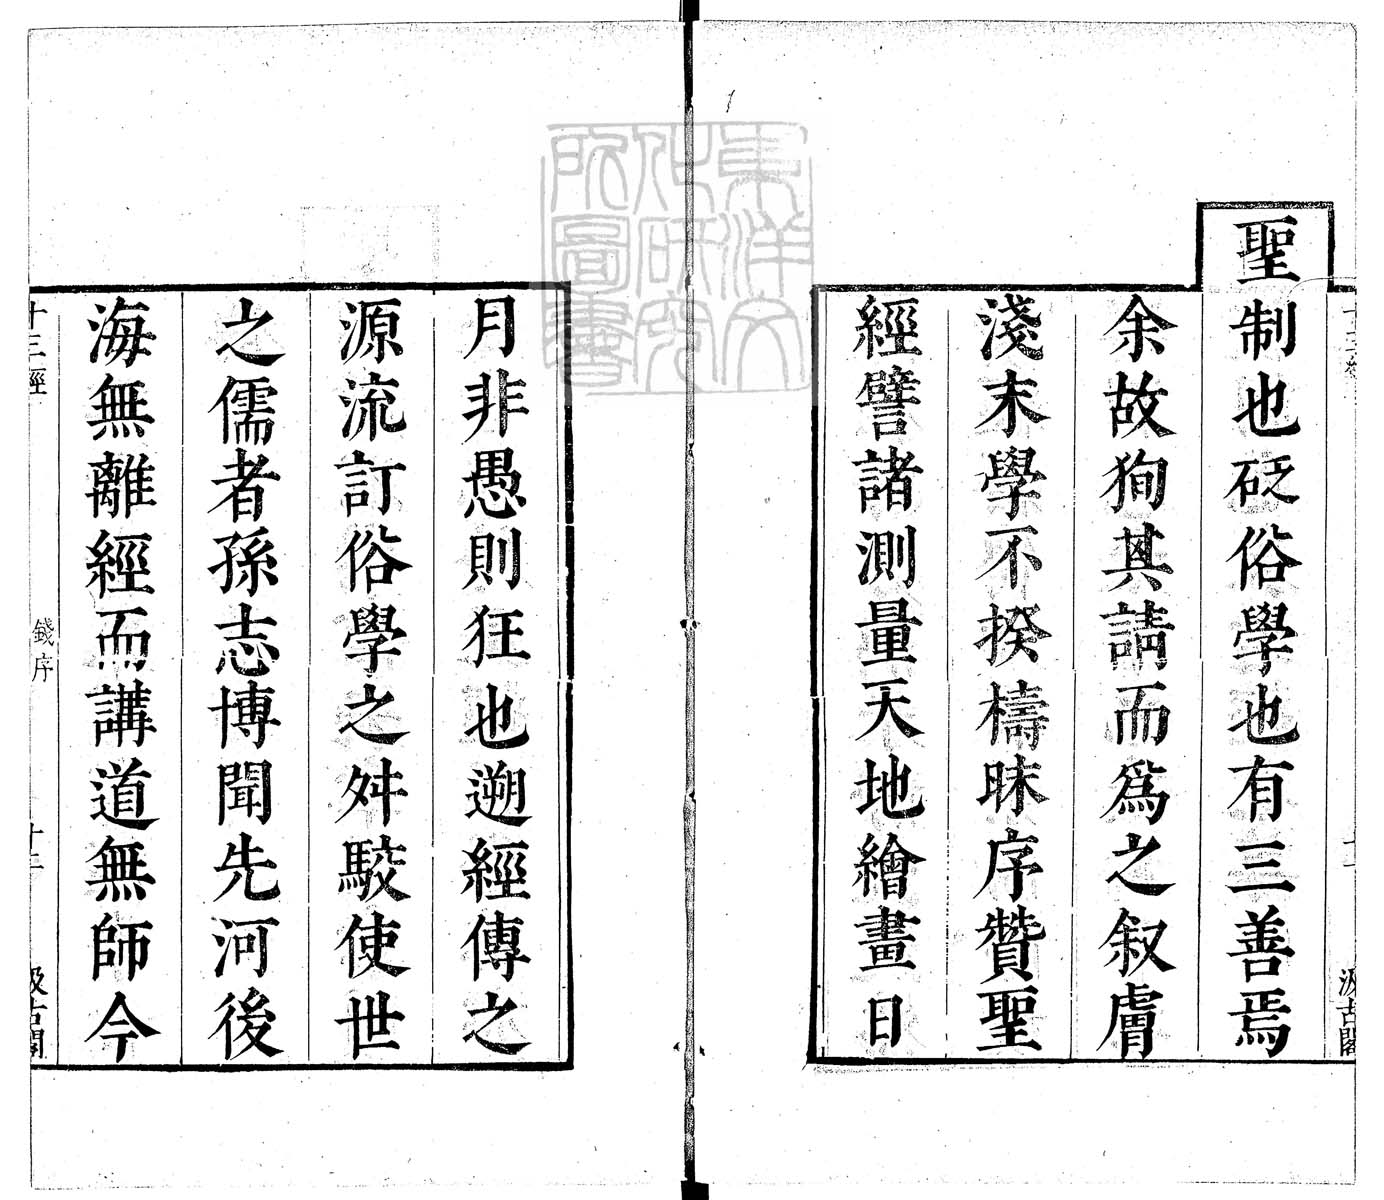 聖制也砭俗學也有三善焉
余故狥其請而爲之叙膚
淺末學不揆檮昧序贊聖
經譬諸測量天地繪畫日
月非愚則狂也遡經傳之
源流訂俗學之舛駮使世
之儒者孫志博聞先河後
海無離經而講道無師今
十三經
錢序
十二
汲古閣
汲古閣
東洋文
化研究
所圖書